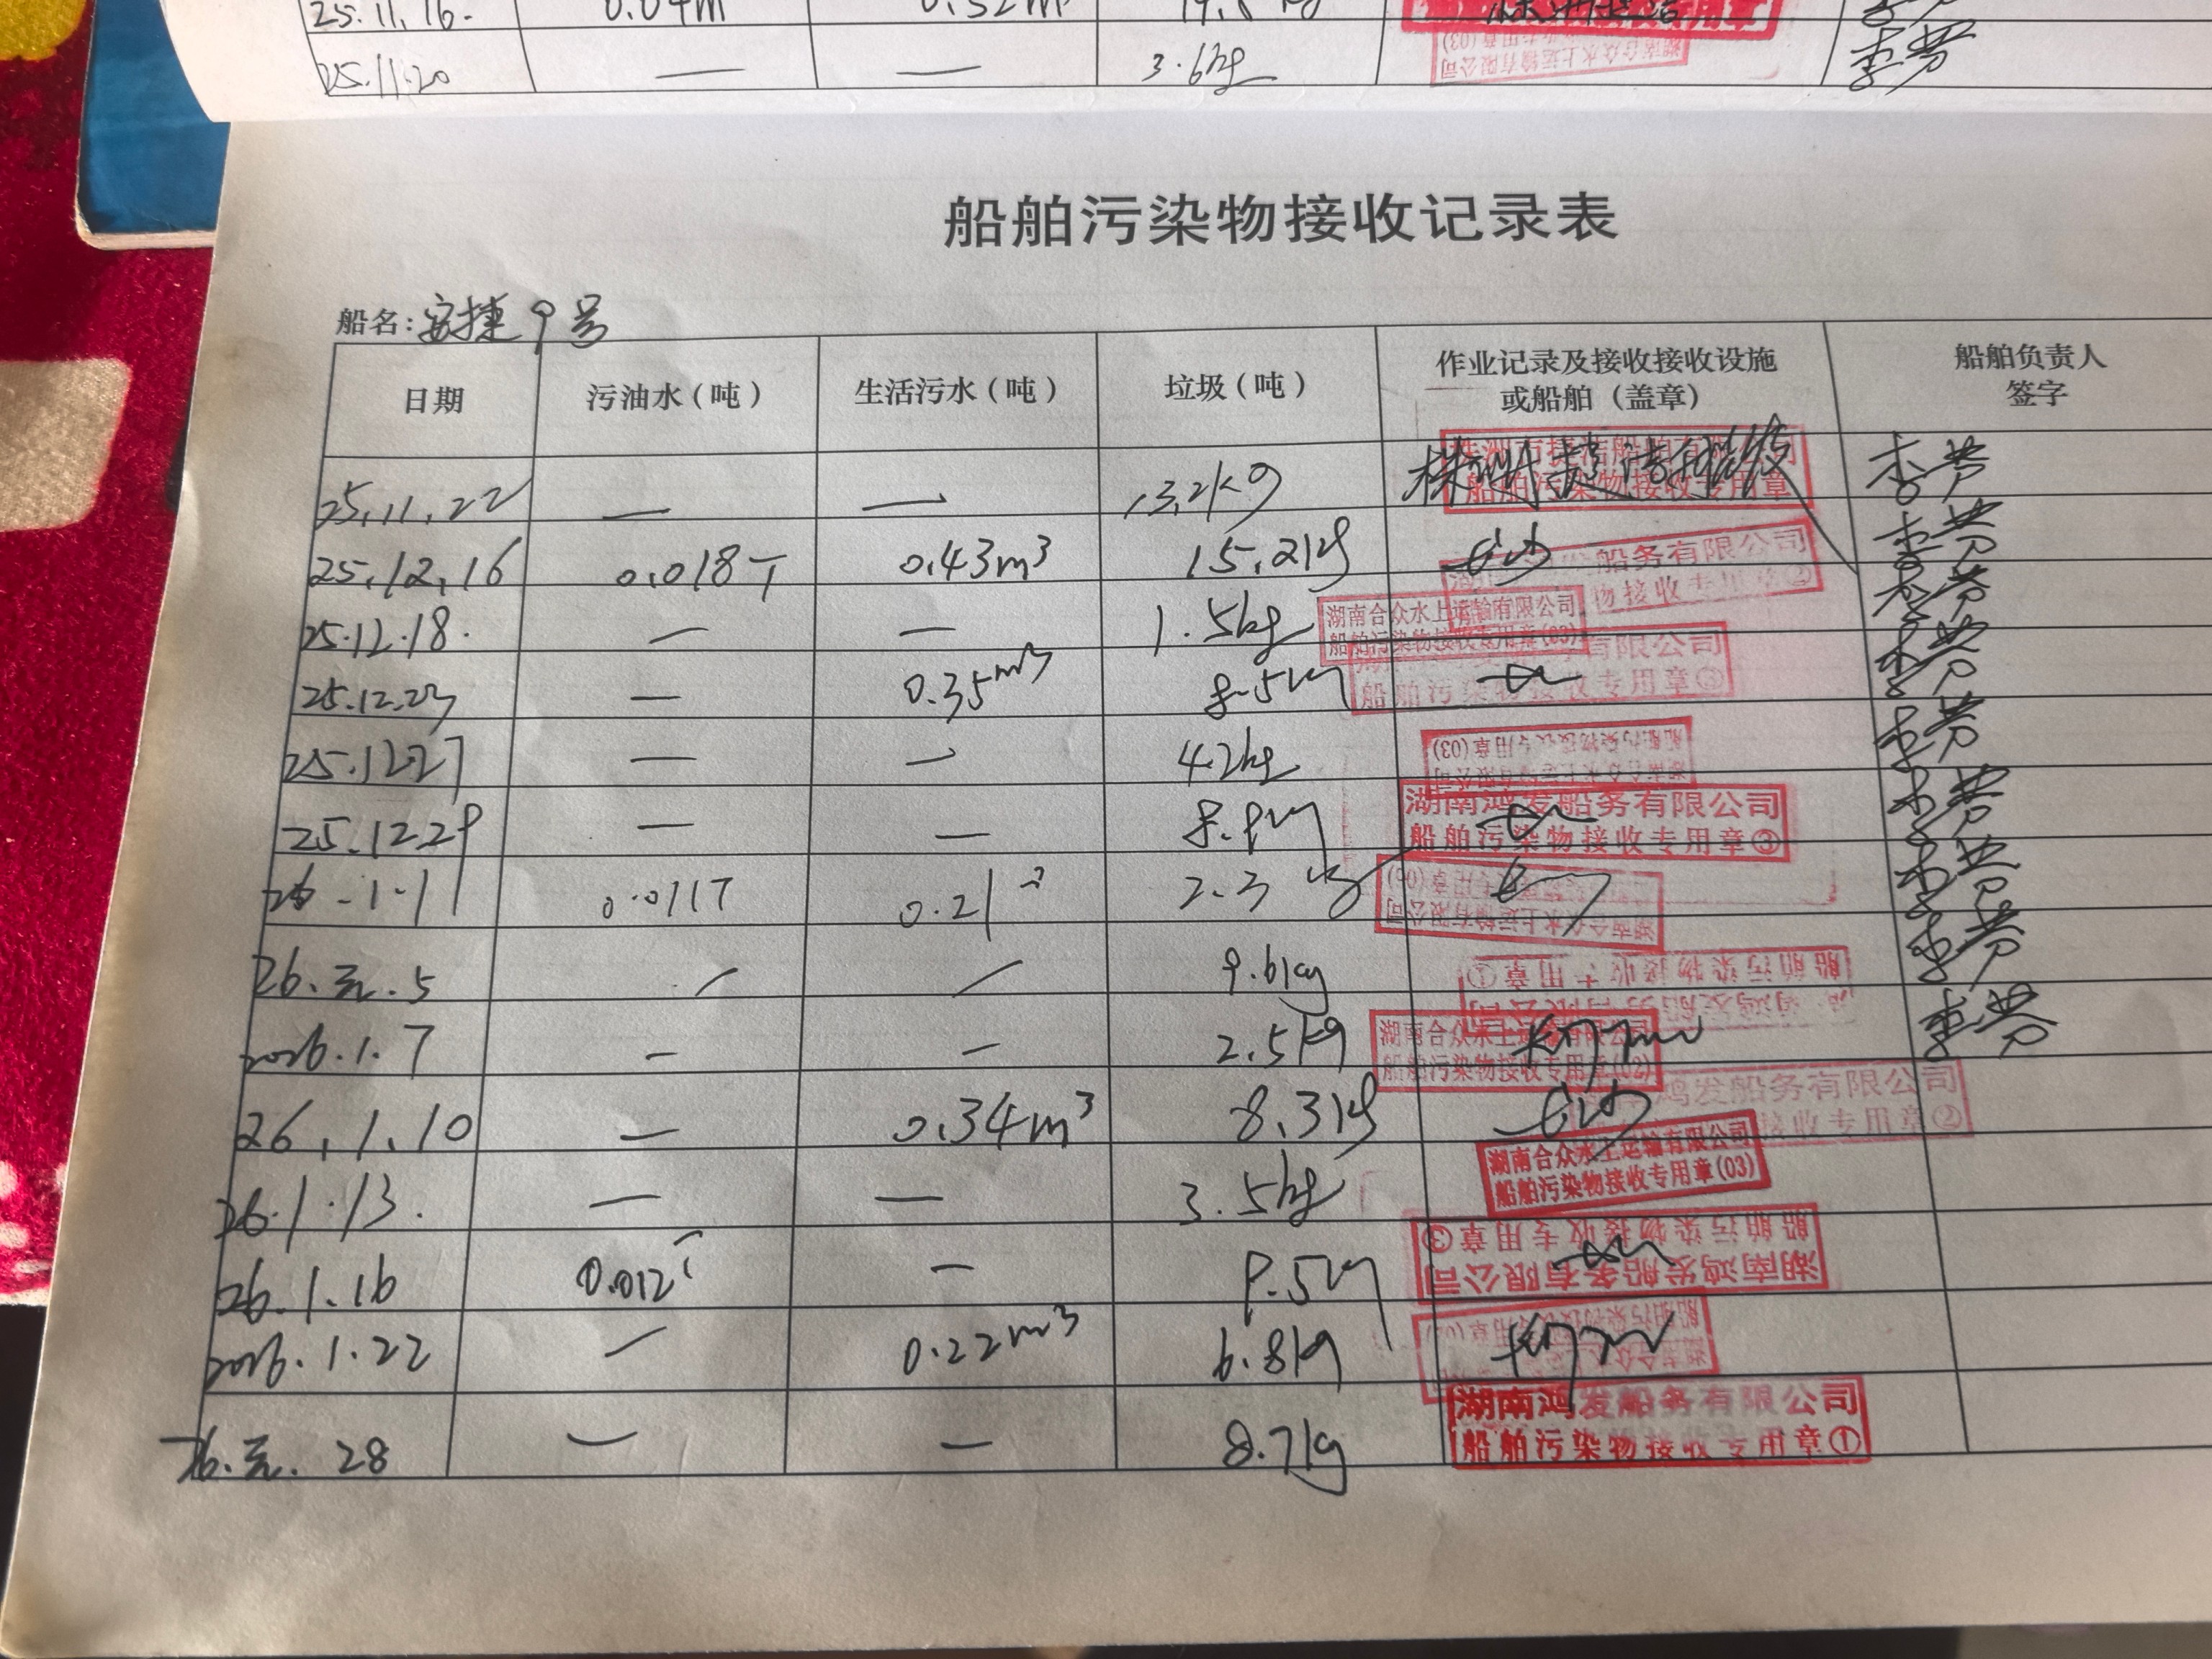 25.11.16.
25.11.20 — — 3.6kg 李芳
船舶污染物接收记录表
船名: 安捷9号
日期 污油水（吨） 生活污水（吨） 垃圾（吨） 作业记录及接收接收设施或船舶（盖章） 船舶负责人签字
25.11.22 — — 13.2kg 李芳
株洲市捷洁船舶有限公司
船舶污染物接收专用章
25.12.16 0.018T 0.43m³ 15.2kg 长沙 李芳
船务有限公司
物接收专用章②
25.12.18. — — 1.5kg 李芳
湖南合众水上运输有限公司
船舶污染物接收专用章(03)
25.12.23 — 0.35m³ 8.5kg 李芳
有限公司
船舶污染物接收专用章③
25.12.27 — — 4.2kg 李芳
湖南合众水上运输有限公司
船舶污染物接收专用章(03)
25.12.29 — — 8.9kg 李芳
湖南鸿发船务有限公司
船舶污染物接收专用章③
26.1.1 0.011T 0.21 2.3kg 李芳
湖南合众水上运输有限公司
26.元.5 / / 9.6kg 李芳
船舶污染物接收专用章①
2026.1.7 — — 2.5kg 李芳
湖南合众水上运输有限公司
船舶污染物接收专用章
26.1.10 — 0.34m³ 8.3kg 长沙
鸿发船务有限公司
接收专用章②
26.1.13. — — 3.5kg
湖南合众水上运输有限公司
船舶污染物接收专用章(03)
26.1.16 0.012T — 9.5kg
湖南鸿发船务有限公司
船舶污染物接收专用章③
2026.1.22 / 0.22m³ 6.8kg
26.元.28 — — 8.7kg
湖南鸿发船务有限公司
船舶污染物接收专用章①